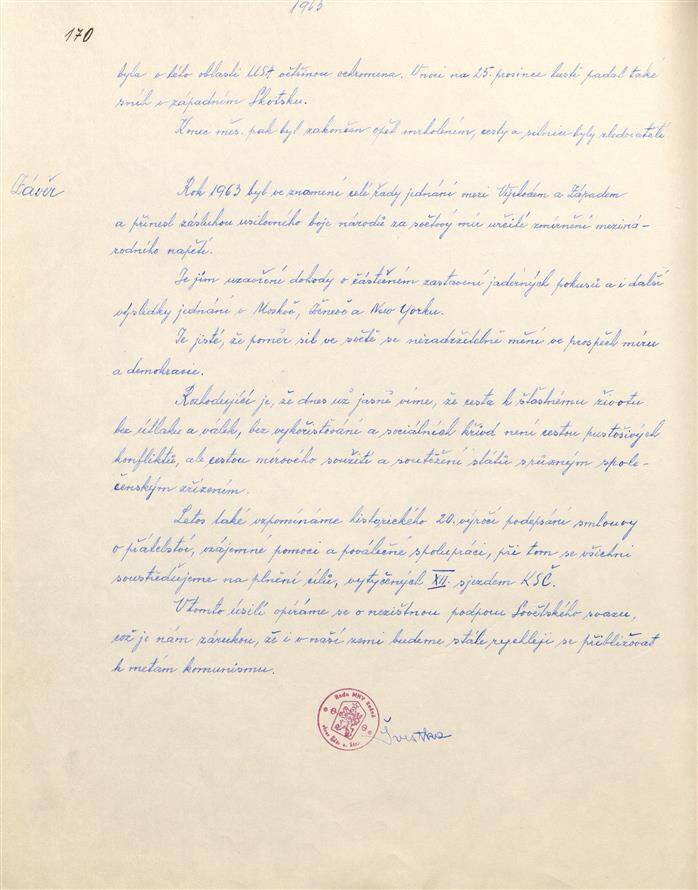 1963
170
byla v této oblasti USA většinou ochromena. V noci na 25. prosince hustě padal také
sníh v západním Skotsku.
Konec měs. pak byl zakončen opět mrholením, cesty a silnice byly zledovatělé
Závěr
Rok 1963 byl ve znamení celé řady jednání mezi Východem a Západem
a přinesl zásluhou usilovného boje národů za světový mír určité zmírnění meziná-
rodního napětí.
Je jím uzavření dohody o částečném zastavení jaderných pokusů a i další
výsledky jednání v Moskvě, Ženevě a New Yorku.
Je jisté, že poměr sil ve světě se nezadržitelně mění ve prospěch míru
a demokracie.
Rozhodující je, že dnes už jasně víme, že cesta k šťastnému životu
bez útlaku a válek, bez vykořisťování a sociálních křivd není cestou pustošivých
konfliktů, ale cestou mírového soužití a soutěžení států s různým spole-
čenským zřízením.
Letos také vzpomínáme historického 20. výročí podepsání smlouvy
o přátelství, vzájemné pomoci a poválečné spolupráci, při tom se všichni
soustřeďujeme na plnění cílů, vytyčených XII. sjezdem KSČ.
V tomto úsilí opíráme se o nezištnou podporu Sovětského svazu,
což je nám zárukou, že i v naší zemi budeme stále rychleji se přibližovat
k metám komunismu.
Rada MNV
Švestka